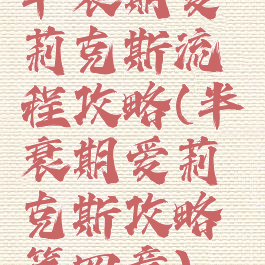 半衰期爱
莉克斯流
程攻略(半
衰期爱莉
克斯攻略
第四章)